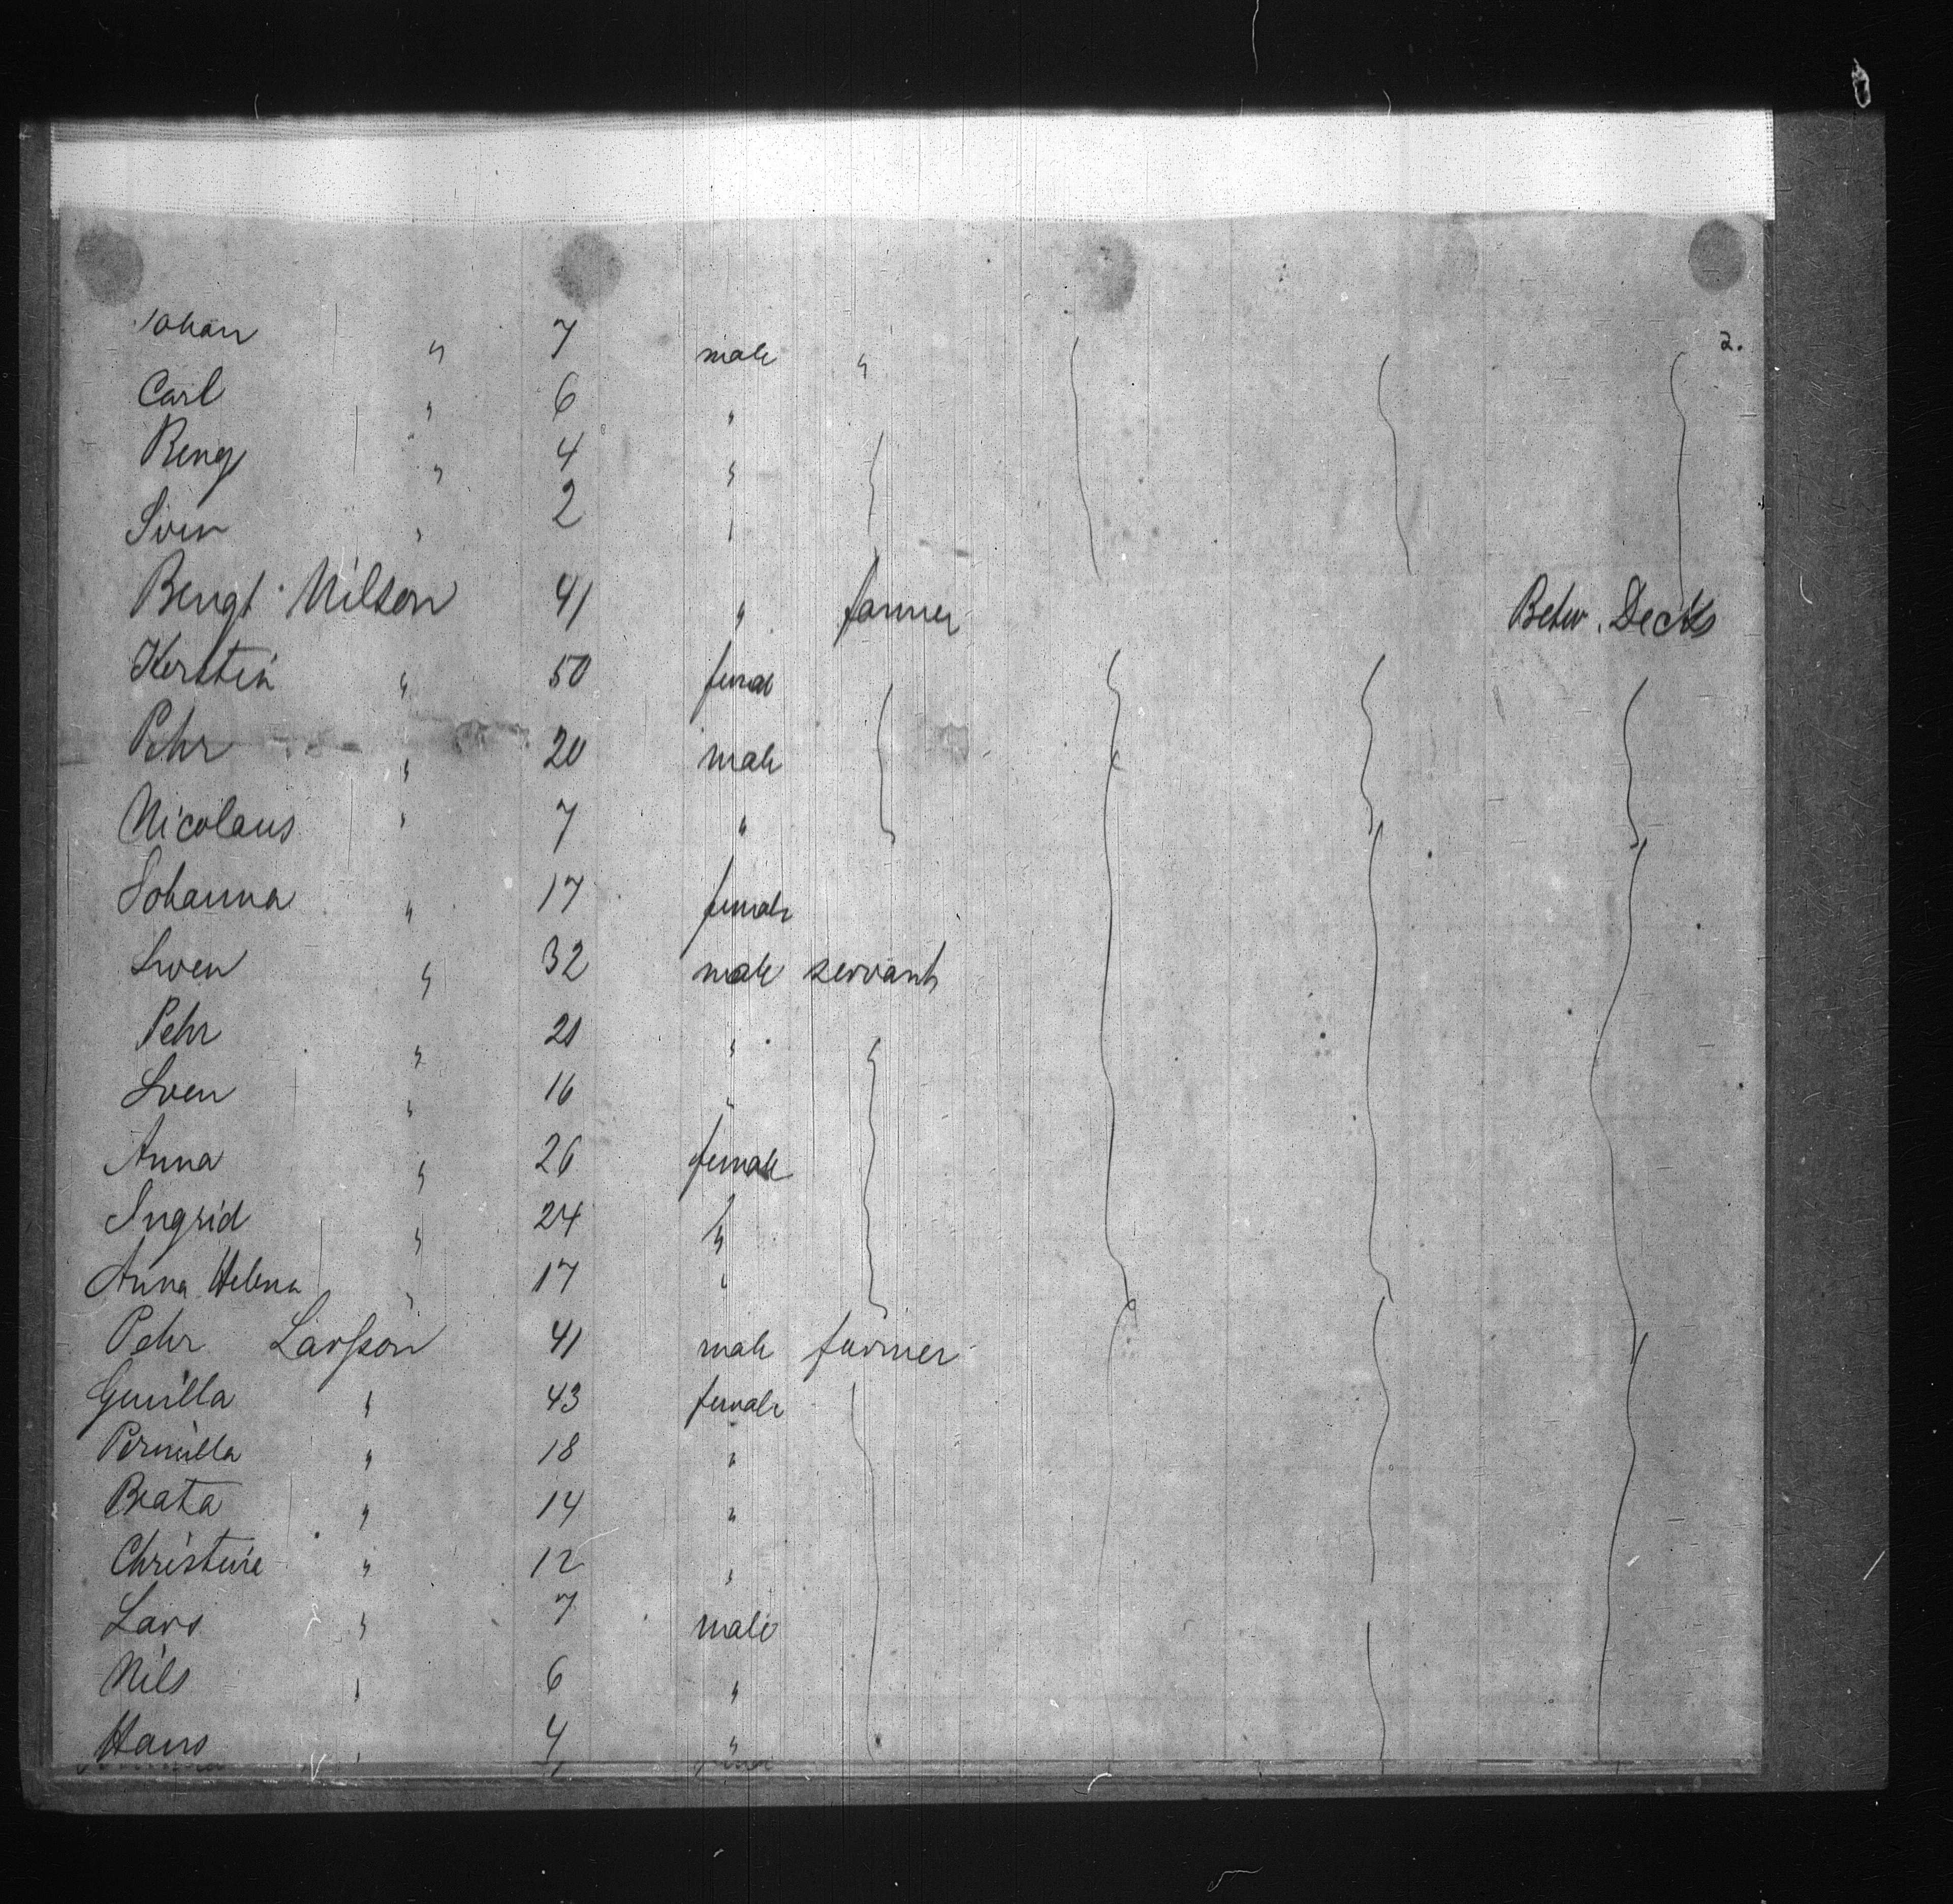 2.
Johan " 7 male "
Carl " 6 "
Beng " 4 "
Sven " 2 "
Bengt Nilson 41 " farmer Betw. Decks
Kerstin " 50 femal
Pehr " 20 male
Nicolaus " 7 "
Johanna " 17 female
Swen " 32 male servant
Pehr " 21 "
Sven " 16 "
Anna " 26 female
Ingrid " 24 "
Anna Helena " 17 "
Pehr Larsson 41 male farmer
Gunilla " 43 female
Pernilla " 18 "
Beata " 14 "
Christine " 12 "
Lars " 7 male
Nils " 6 "
Hans " 4 "